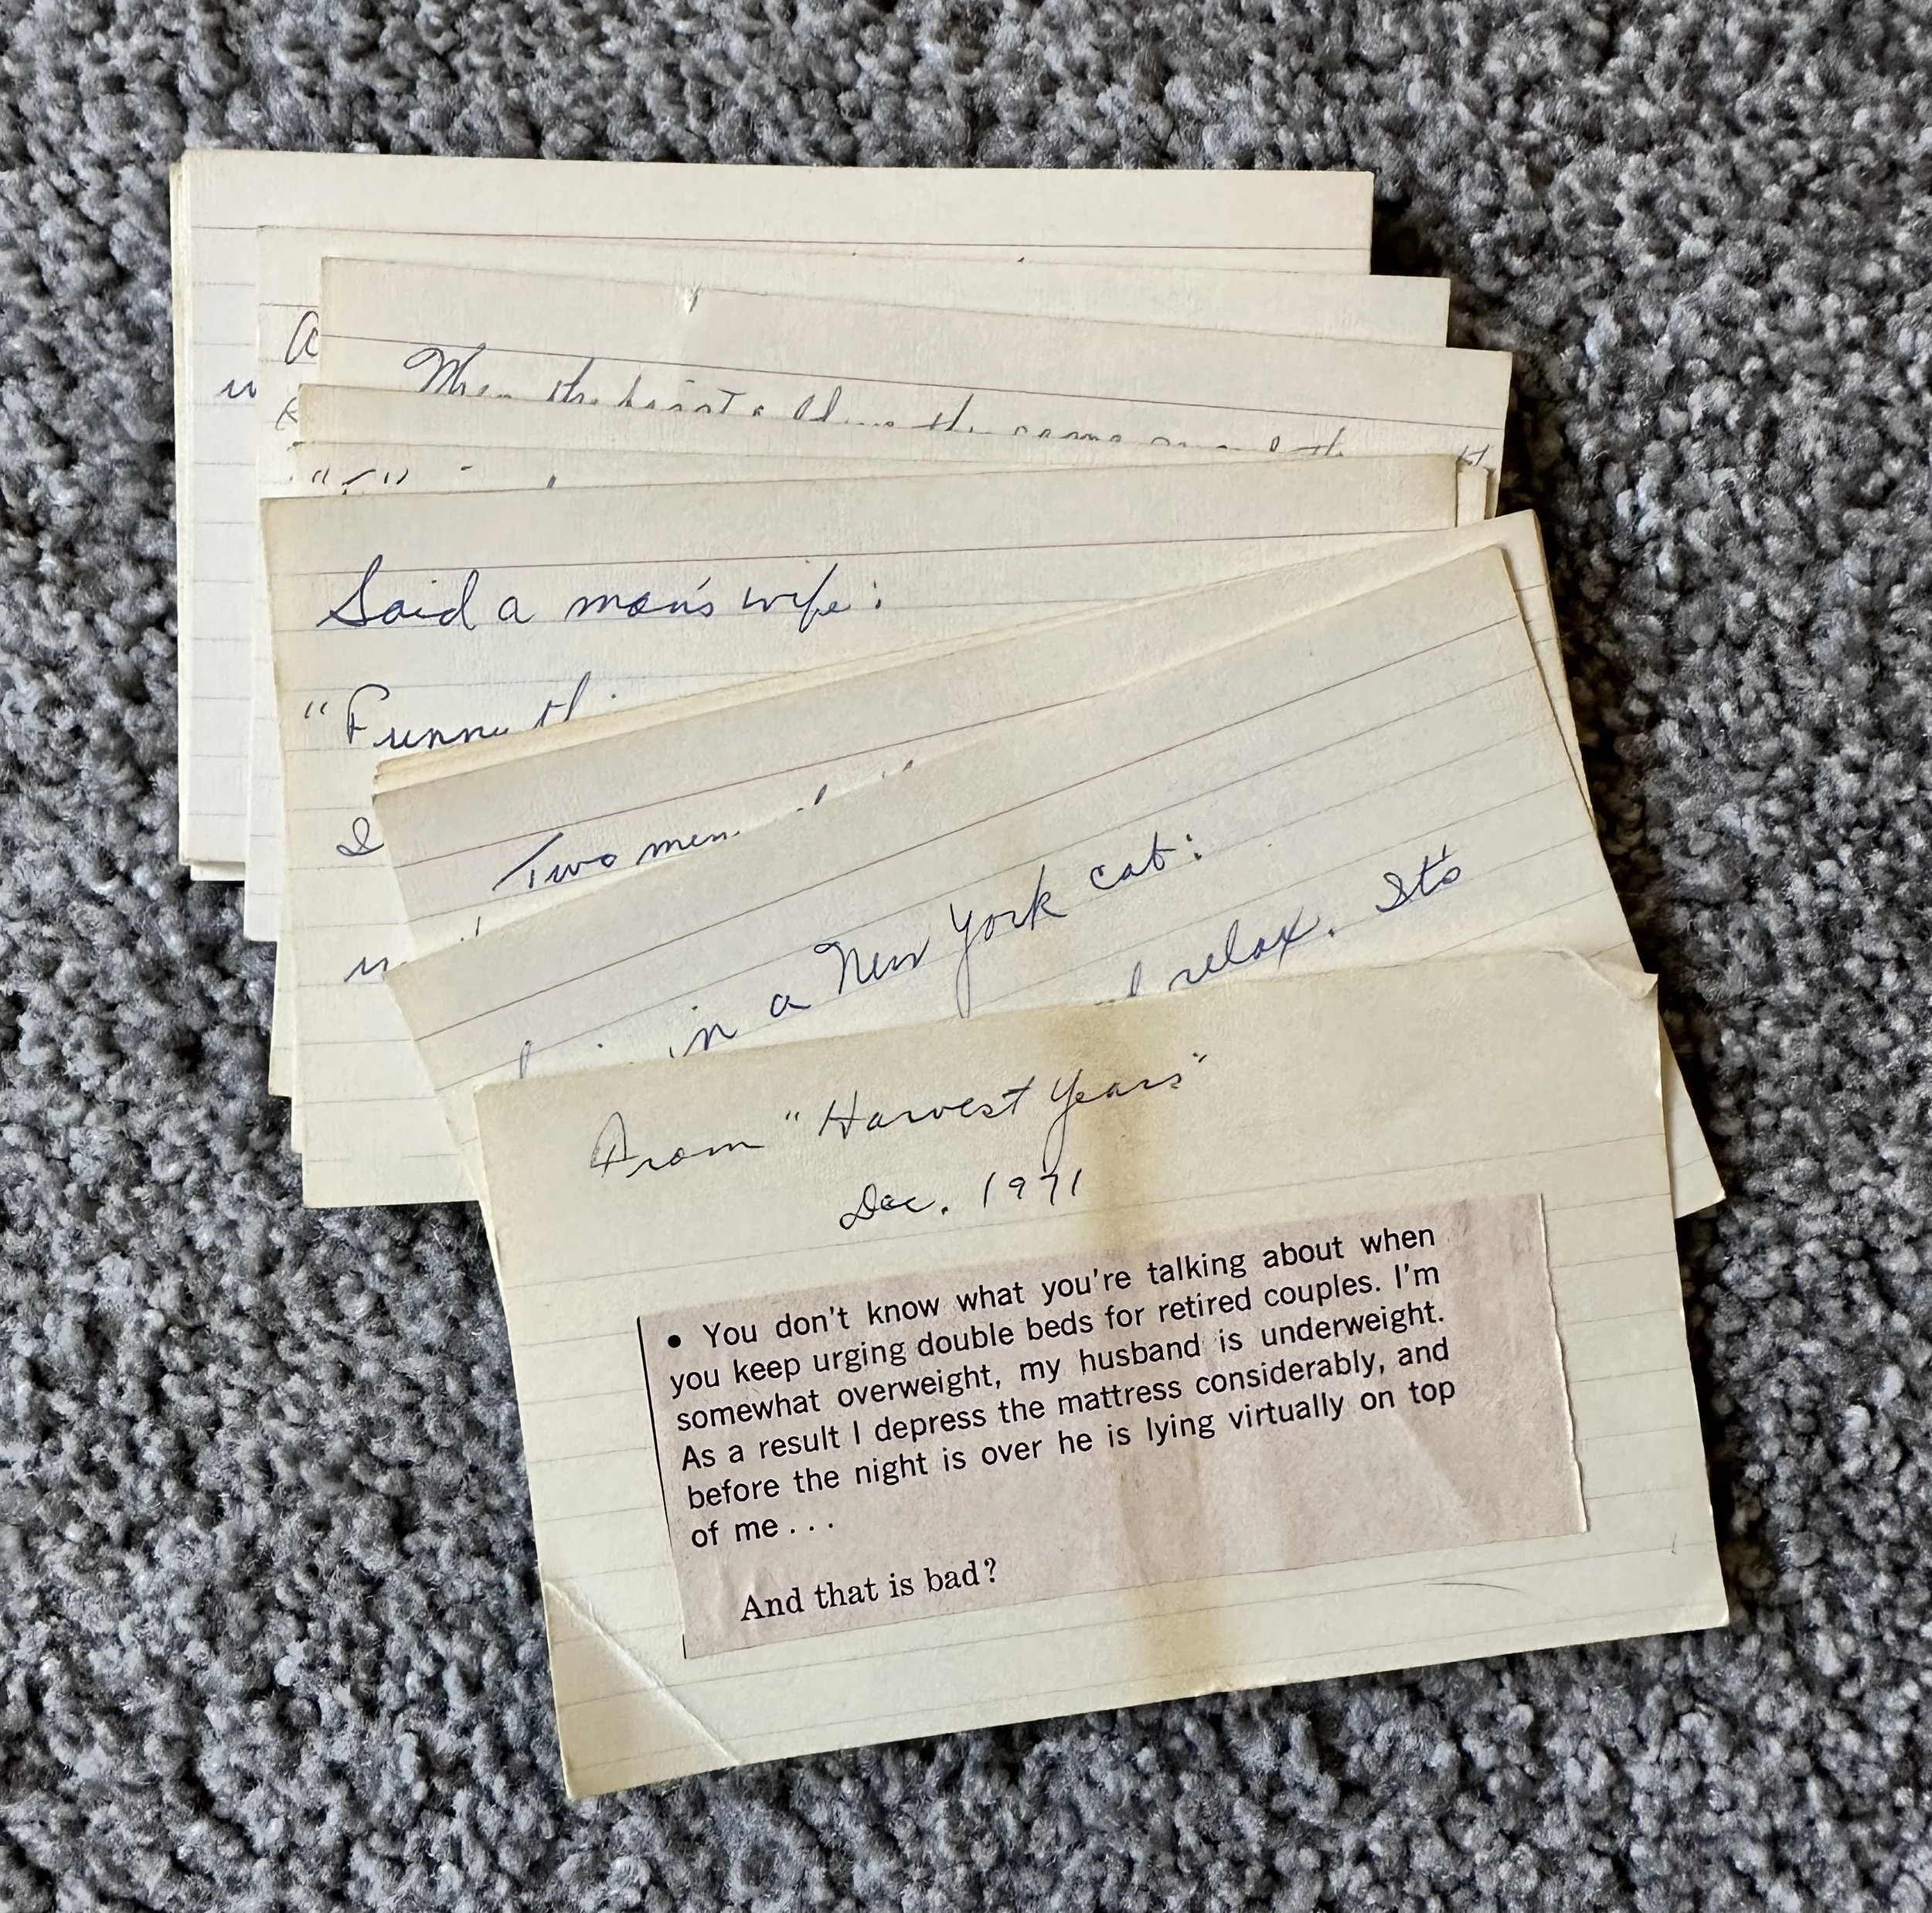 When the
Said a man's wife:
"Funny
I
Two men
in a New York cab:
relax. It's
From "Harvest Years"
Dec. 1971
• You don't know what you're talking about when
you keep urging double beds for retired couples. I'm
somewhat overweight, my husband is underweight.
As a result I depress the mattress considerably, and
before the night is over he is lying virtually on top
of me . . .
And that is bad?